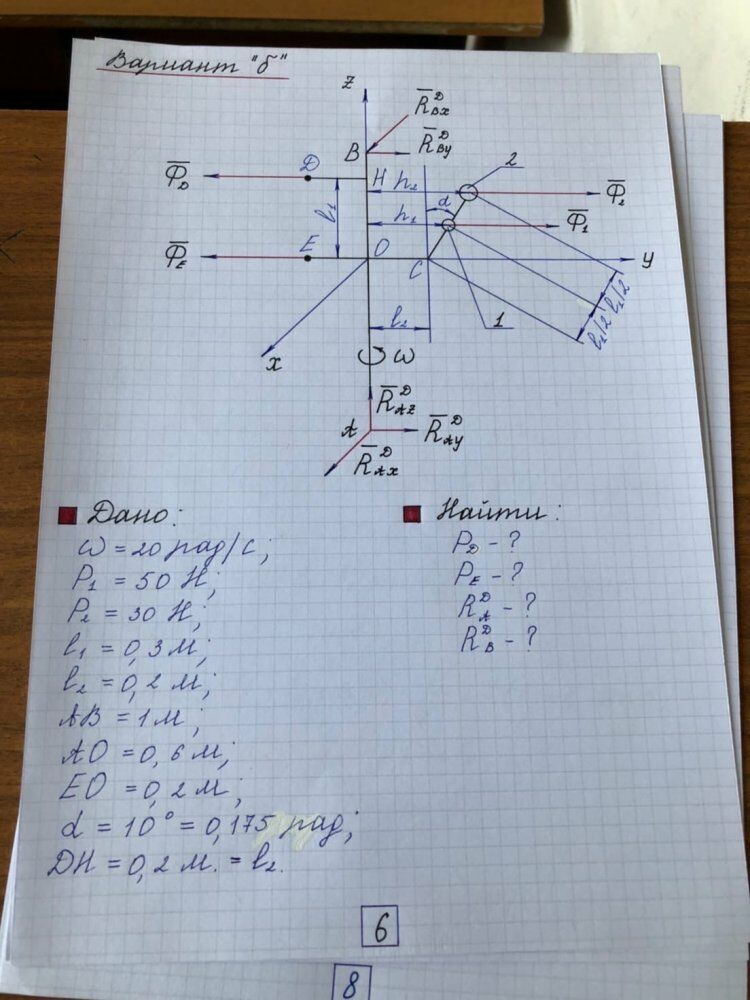 Вариант "б"
z
R̅ᴰBx
R̅ᴰBy
B
2
Φ̅D
D
H
h₂
α
Φ̅₂
l₁
h₁
Φ̅₁
Φ̅E
E
O
C
y
l₂
1
l₁/2
l₁/2
x
ω
R̅ᴰAz
A
R̅ᴰAy
R̅ᴰAx
Дано:
ω = 20 рад/с;
P₁ = 50 Н;
P₂ = 30 Н;
l₁ = 0,3 м;
l₂ = 0,2 м;
AB = 1 м;
AO = 0,6 м;
EO = 0,2 м;
α = 10° = 0,175 рад;
DH = 0,2 м. = l₂.
Найти:
PD - ?
PE - ?
RᴰA - ?
RᴰB - ?
6
8